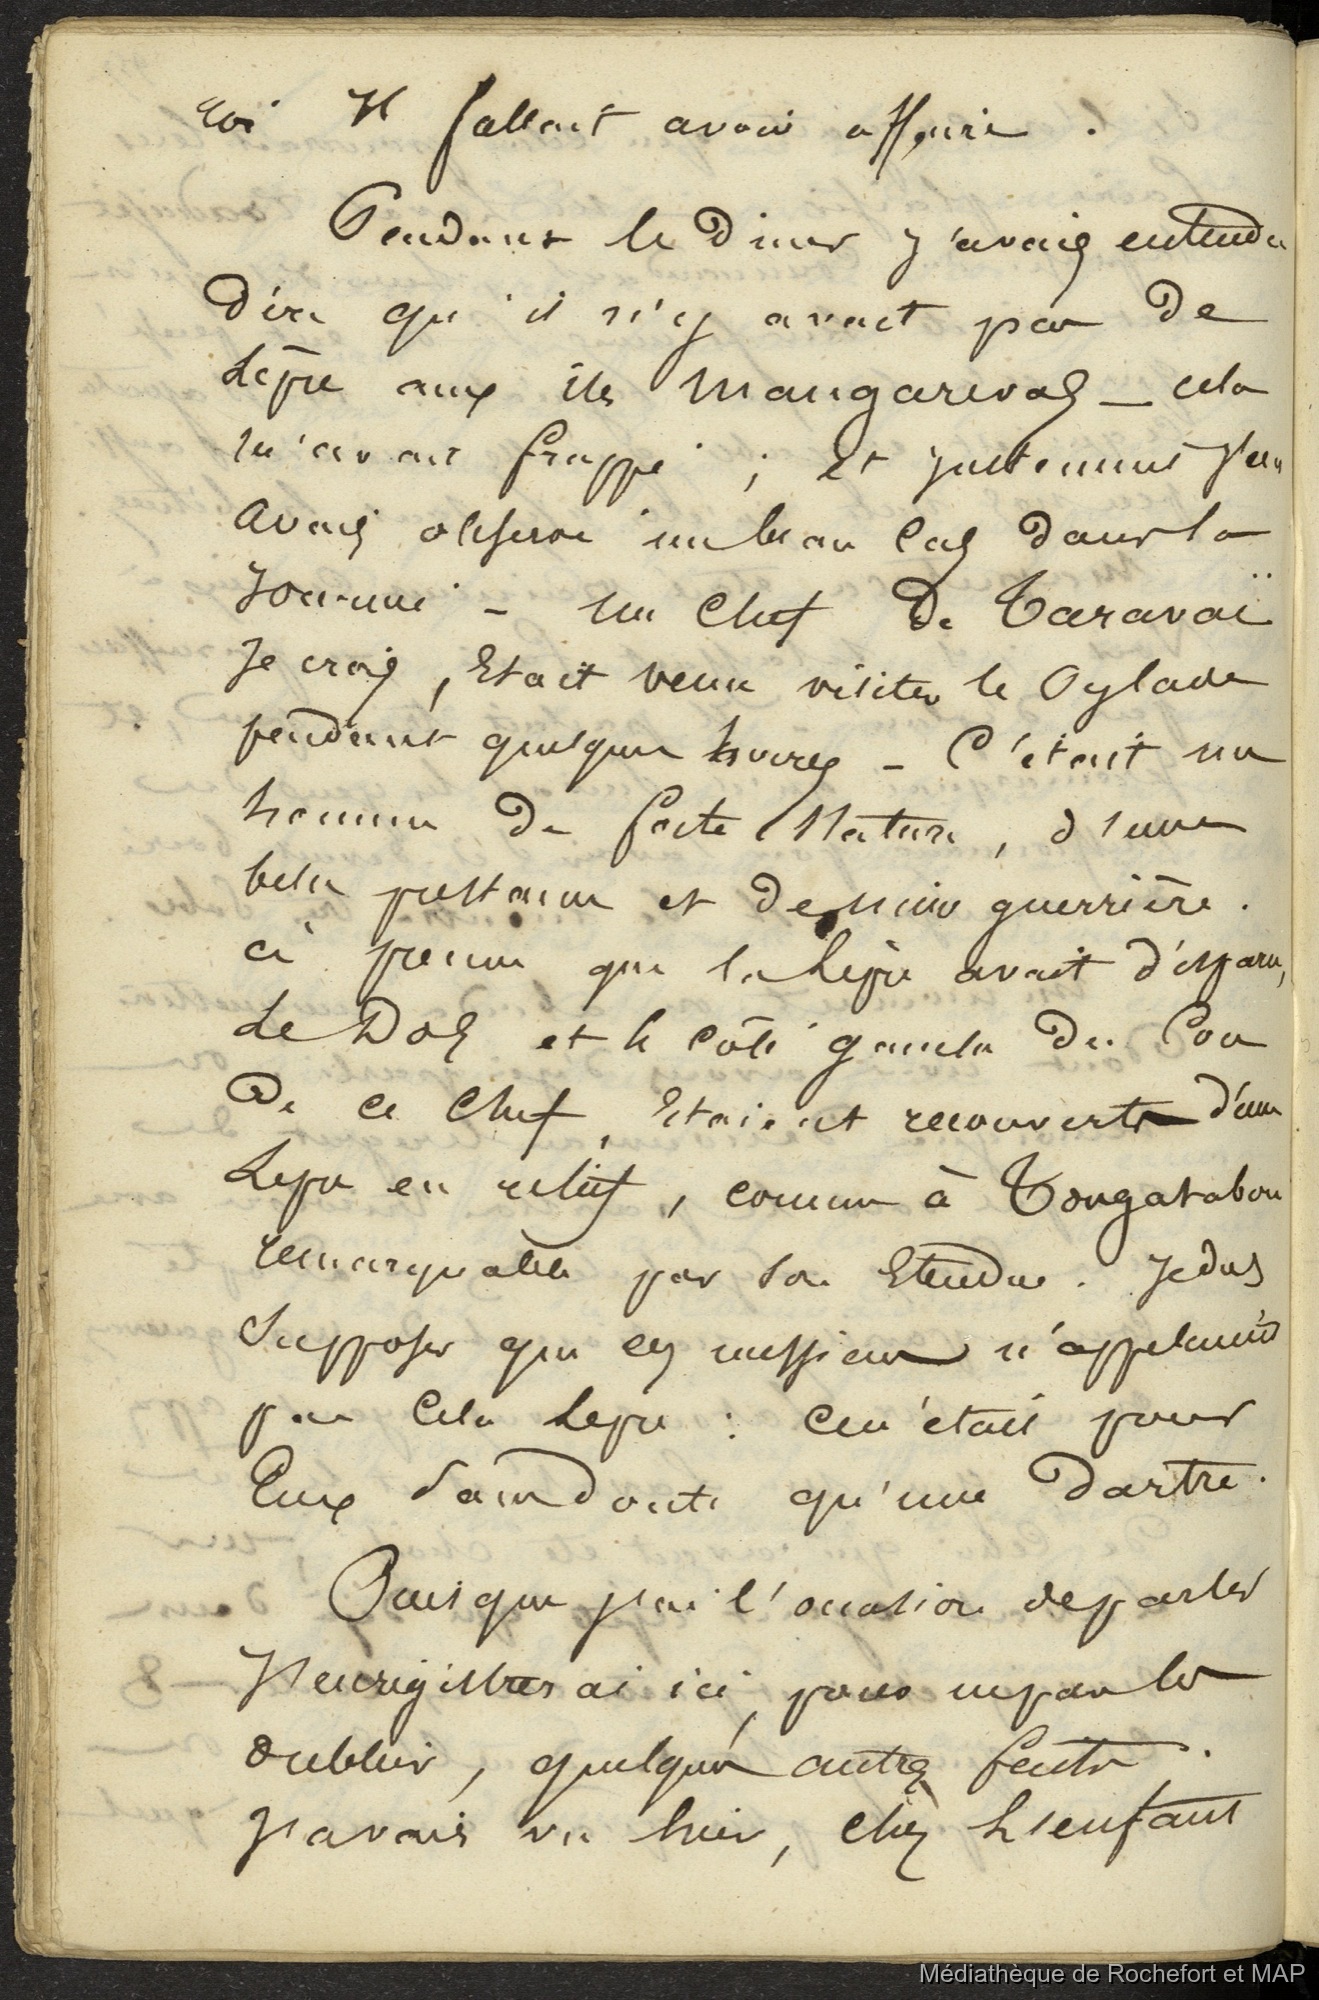 roi il fallait avoir affaire.
Pendant le Diner j'avais entendu
dire qu'il n'y avait pas De
Lèpre aux iles Mangarevas _ cela
m'avait frappé ; Et justement j'en
avais observé un beau Cas Dans la
journée _ un Chef De Taravaï
je crois, Etait venu visiter le
pendant quelques heures _ C'était un
homme De forte Nature, d'une
belle prestance et De mine guerrière.
à preuve que la Lèpre avait disparu,
Le Dos et le côté gauche Du Cou
De ce Chef, Etaient recouverts d'une
Lèpre en relief, comme à Tongatabou
remarquable par son Etendue. je dus
supposer que ces messieurs n'appelaient
pas Cela Lèpre : Ce n'était pour
Eux sans Doute qu'une Dartre.
Puisque j'ai l'occasion de parler
j'enregistrerai ici, pour ne pas les
oublier, quelques autres faits.
j'avais vu hier, chez les enfants
Médiathèque de Rochefort et MAP